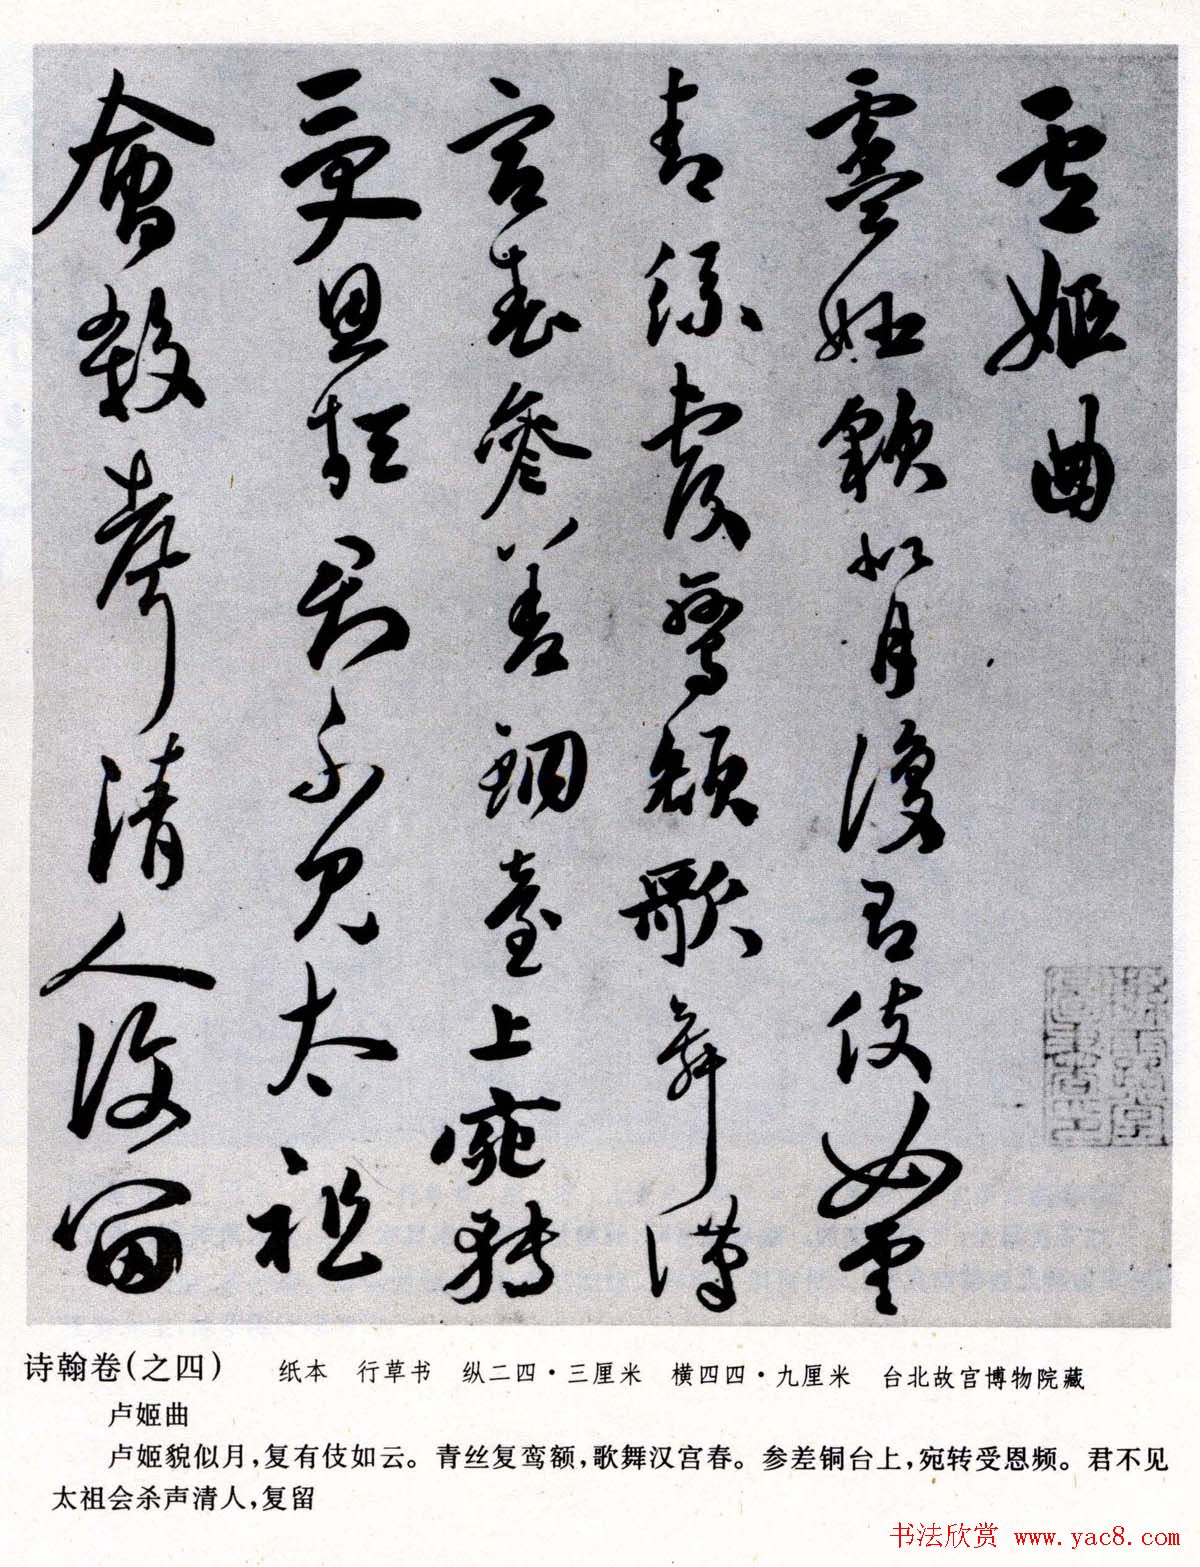 盧姬曲
盧姬貌似月復有伎如雲
青絲覆鸞額歌舞漢
宮春參差銅臺上宛轉
受恩頻君不見太祖
會殺聲清人復留
诗翰卷(之四) 纸本 行草书 纵二四·三厘米 横四四·九厘米 台北故宫博物院藏
卢姬曲
卢姬貌似月,复有伎如云。青丝复鸾额,歌舞汉宫春。参差铜台上,宛转受恩频。君不见
太祖会杀声清人,复留
书法欣赏 www.yac8.com